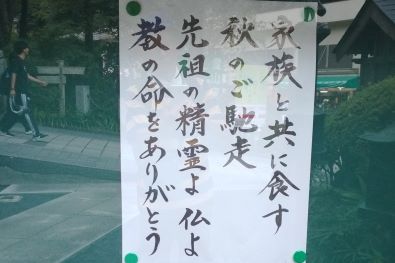 家族と共に食す
秋のご馳走
先祖の精霊よ 仏よ
数の命をありがとう